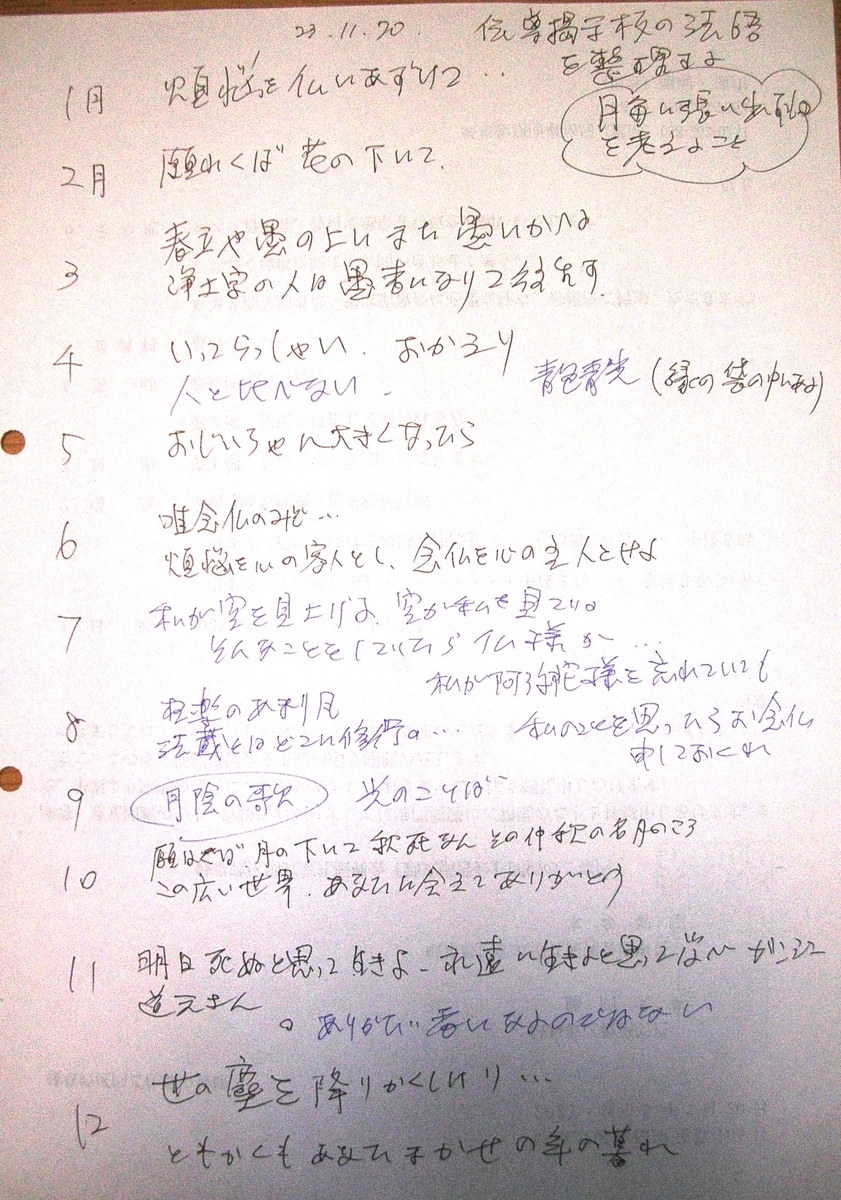 23.11.20. 伝導掲示板の法語
を整理する
月毎に張り出すもの
を考えること
1月 煩悩を仏にあずけて…
2月 願わくば 花の下にて、
3 春立や愚の上にまた愚にかへる
浄土宗の人は愚者になりて往生す
4 いってらっしゃい、おかえり
人と比べない
青色青光(縁の袋の中にある)
5 おじいちゃん大きくなったら
6 唯念仏のみぞ…
煩悩を心の客人とし、念仏を心の主人とせよ
7 私が空を見上げる、空が私を見ている
そんなことをしていたら仏様が…
私が阿弥陀様を忘れていても
8 極楽のあまり風
法蔵とはどこに修行の…
私のことを思ったらお念仏
申しておくれ
9 月陰の歌 光のことば…
10 願はくば月の下にて秋死なん その仲秋の名月のころ
この広い世界、あなたに会えてありがとう
11 明日死ぬと思って生きよ 永遠に生きると思って学べ ガンジー
道元さん
ありがたい 春になるのではない
12 世の塵を降りかくしけり…
ともかくもあなたまかせの年の暮れ